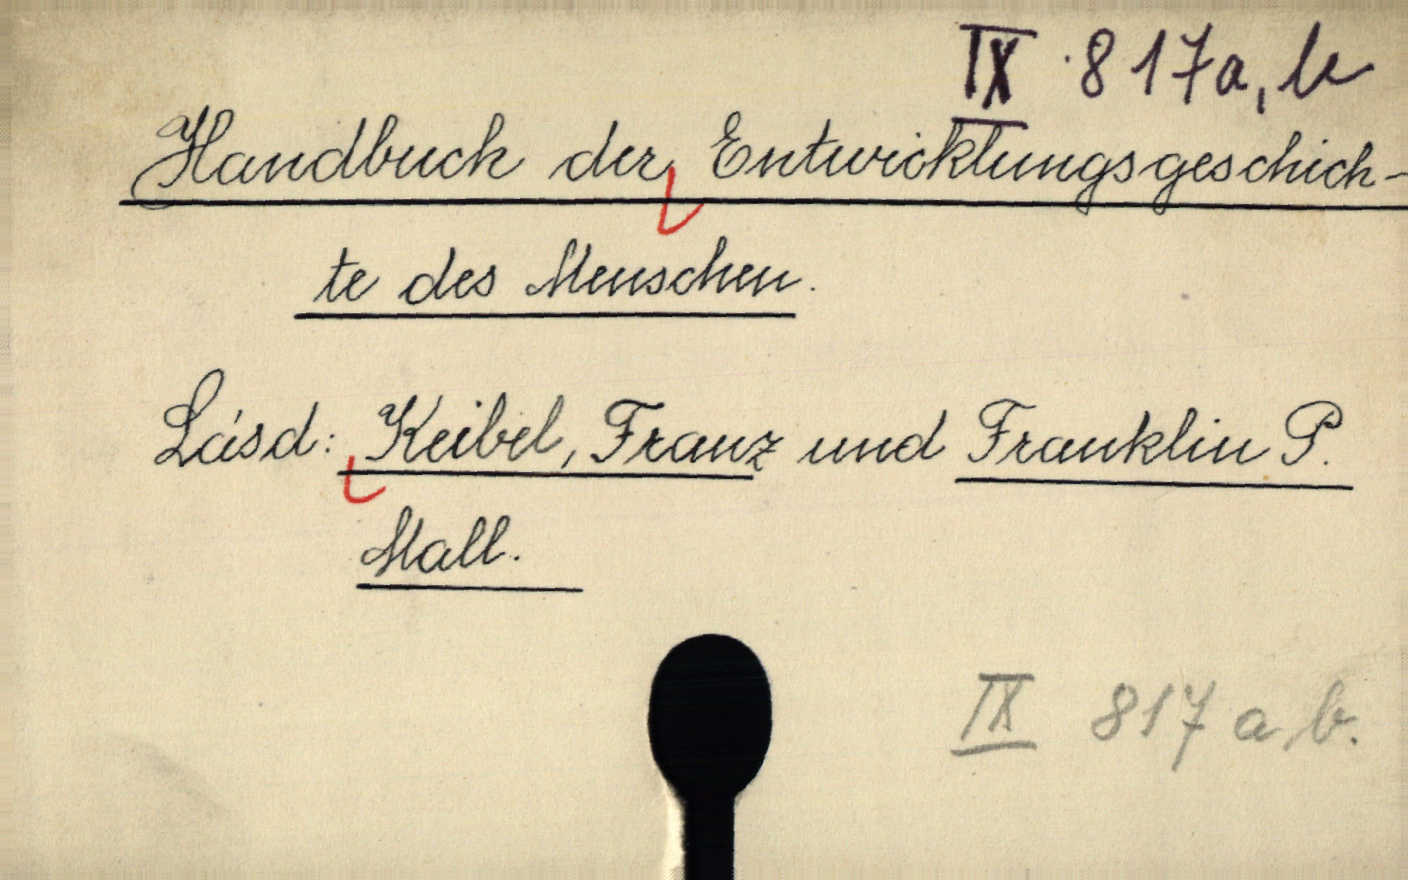 IX 817a, b
Handbuch der Entwicklungsgeschich-
te des Menschen.
Lásd: Keibel, Franz und Franklin P.
Mall.
IX 817 a, b.